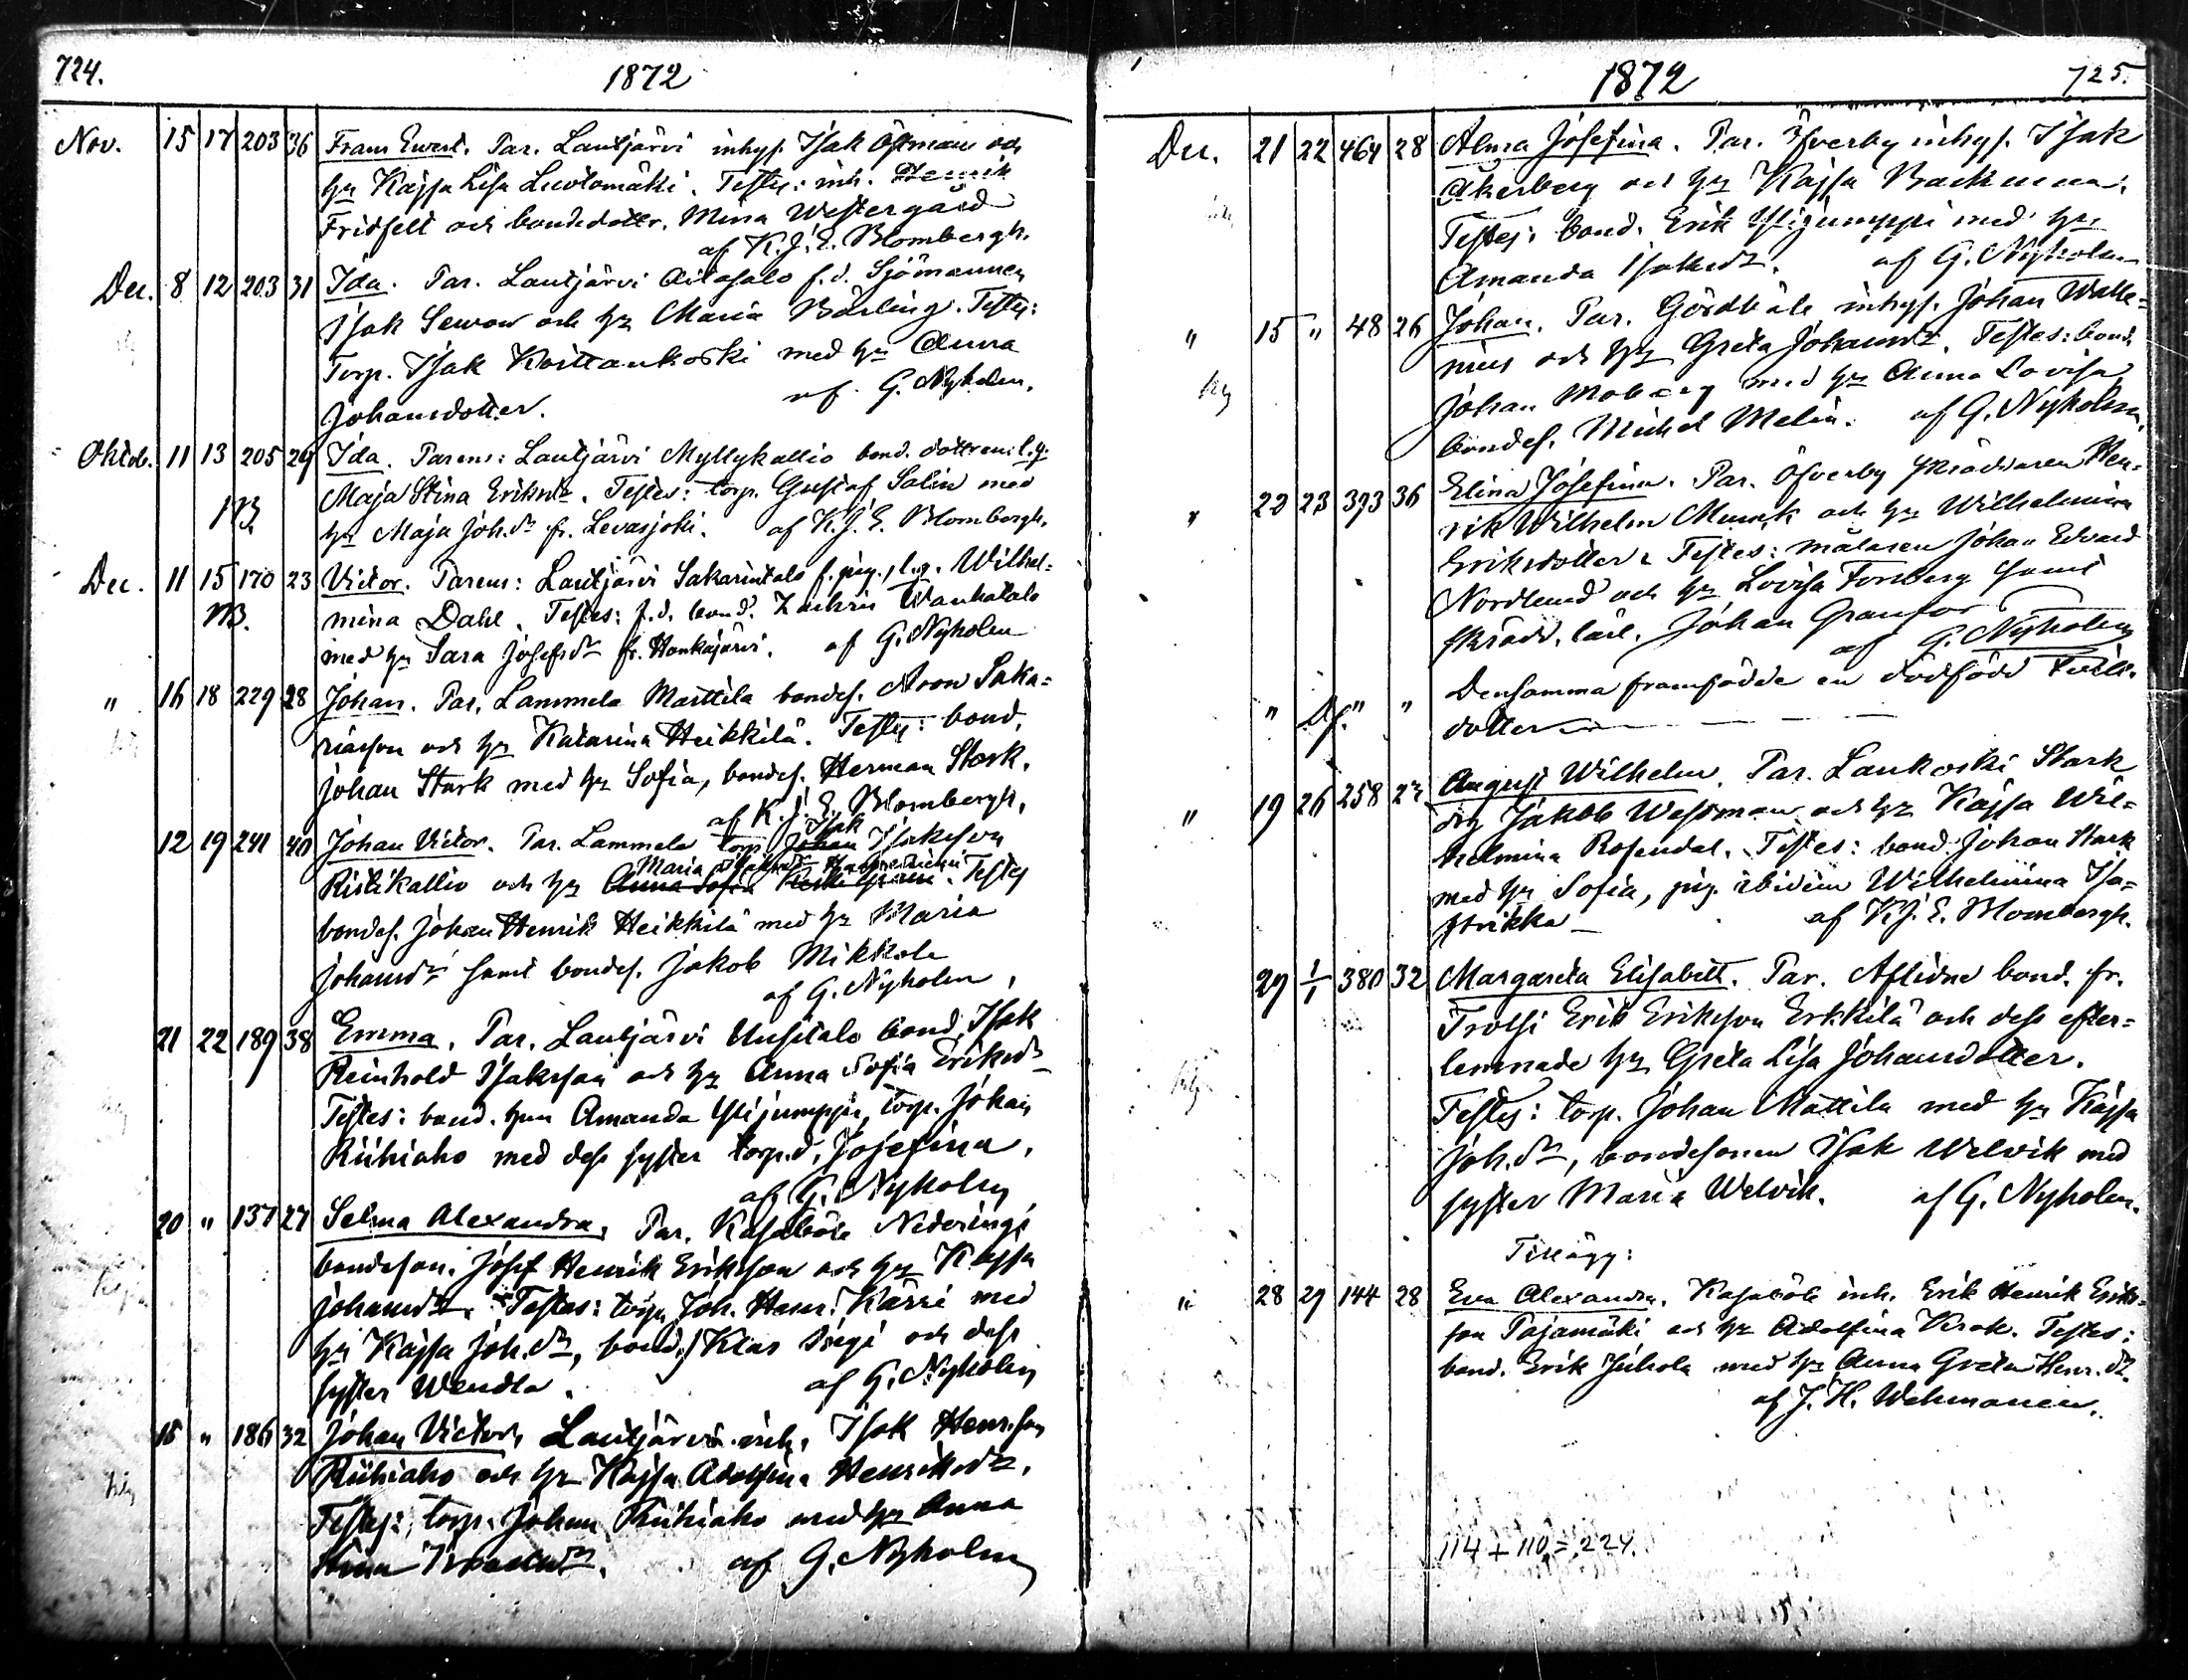 724.
1872
Nov. 15 17 203 36 Frans Evert. Par. Lautjärvi inhys. Isak Öfman och
hu Kajsa Lisa Luotomäki. Testes: inh. Henrik
Fridfelt och bondedottr. Mina Westergård
af K.J.E. Blombergh.
Dec. 8 12 203 31 Ida. Par. Lautjärvi Aitasalo f.d. Sjömannen
Isak Sewon och hu Maria Bärling. Testes:
Torp. Isak Koittankoski med hu Anna
Johansdotter. af G. Nyholm.
Oktob. 11 13 205 29 Ida. Parens: Lautjärvi Myllykallio bond. dottren: l.g.
Maja Stina Eriksdr. Testes: torp. Gustaf Salin med
hu Maja Joh.dr fr. Levasjoki. af K.J.E. Blombergh.
Dec. 11 15 170 23 Victor. Parens: Lautjärvi Sakarintalo f. pig., l.g. Wilhel=
mina Dahl. Testes: f.d. bond. Zachris Wanhatalo
med hu Sara Josefsdr fr. Honkajärvi. af G. Nyholm
" 16 18 229 28 Johan. Par. Lammela Marttila bondes. Aron Saka=
riasson och hu Katarina Heikkilä. Testes: bond.
Johan Stark med hu Sofia, bondes. Herman Stark.
af K.J.E. Blombergh.
12 19 241 40 Johan Victor. Par. Lammela torp. Johan Isak Isaksson
Ristikallio och hu Anna Sofia Maria Testes
bondes. Johan Henrik Heikkilä med hu Maria
Johansdr samt bondes. Jakob Mikkola
af G. Nyholm.
21 22 189 38 Emma. Par. Lautjärvi Uusitalo bond. Isak
Reinhold Isaksson och hu Anna Sofia Eriksdr
Testes: bond. hun Amanda Ylijumppi, torp. Johan
Riihiaho med dess syster torp.d. Josefina.
af G. Nyholm
20 " 137 27 Selma Alexandra. Par. Kasaböle Nederingi
bondeson. Josef Henrik Eriksson och hu Kajsa
Johansdr. Testes: torp. Joh. Henr. Kärri med
hu Kajsa Joh.dr, bond. Klas Ingi och dess
syster Wendla. af G. Nyholm
15 " 186 32 Johan Victor, Lautjärvi inh. Isak Henr.son
Riihiaho och hu Kajsa Adolfina Henriksdr.
Testes: torp. Johan Riihiaho med hu Anna
Stina af G. Nyholm
1872
725.
Dec. 21 22 464 28 Alma Josefina. Par. Öfverby inhys. Isak
Åkerberg och hu Kajsa Backman.
Testes: bond. Erik Ylijumppi med hu
Amanda Isaksdr. af G. Nyholm
" 15 " 48 26 Johan. Par. Gördböle inhys. Johan Walle=
nius och hu Greta Johansdr. Testes: bond.
Johan Moberg med hu Anna Lovisa,
bondes. Michel Melin. af G. Nyholm,
" 22 23 393 36 Elina Josefina. Par. Öfverby skräddaren Hen=
rik Wilhelm Munck och hu Wilhelmina
Eriksdotter. Testes: målaren Johan Edvard
Nordlund och hu Lovisa Forsberg samt
skrädd. lärl. Johan Granfor
af G. Nyholm
" Df. " " Densamma framfödde en dödfödd tvill.
dotter
" 19 26 258 27 August Wilhelm. Par. Lankoski Stark
drg Jakob Wessman och hu Kajsa Wil=
helmina Rosendal. Testes: bond. Johan Stark
med hu Sofia, pig. ibidem Wilhelmina Isa=
strikka af K.J.E. Blombergh.
29 1/1 380 32 Margareta Elisabett. Par. Aflidne bond. fr.
Trolssi Erik Eriksson Erkkilä och dess efter=
lemnade hu Greta Lisa Johansdotter.
Testes: torp. Johan Mattila med hu Kajsa
Joh.dr, bondesonen Isak Welvik med
syster Maria Welvik. af G. Nyholm.
Tillägg:
" 28 29 144 28 Eva Alexandra. Kasaböle inh. Erik Henrik Eriks=
son Pajamäki och hu Adolfina Krok. Testes:
bond. Erik Juhola med hu Anna Greta Henr.dr.
af J. H. Wehmanen.
114 + 110 = 224.